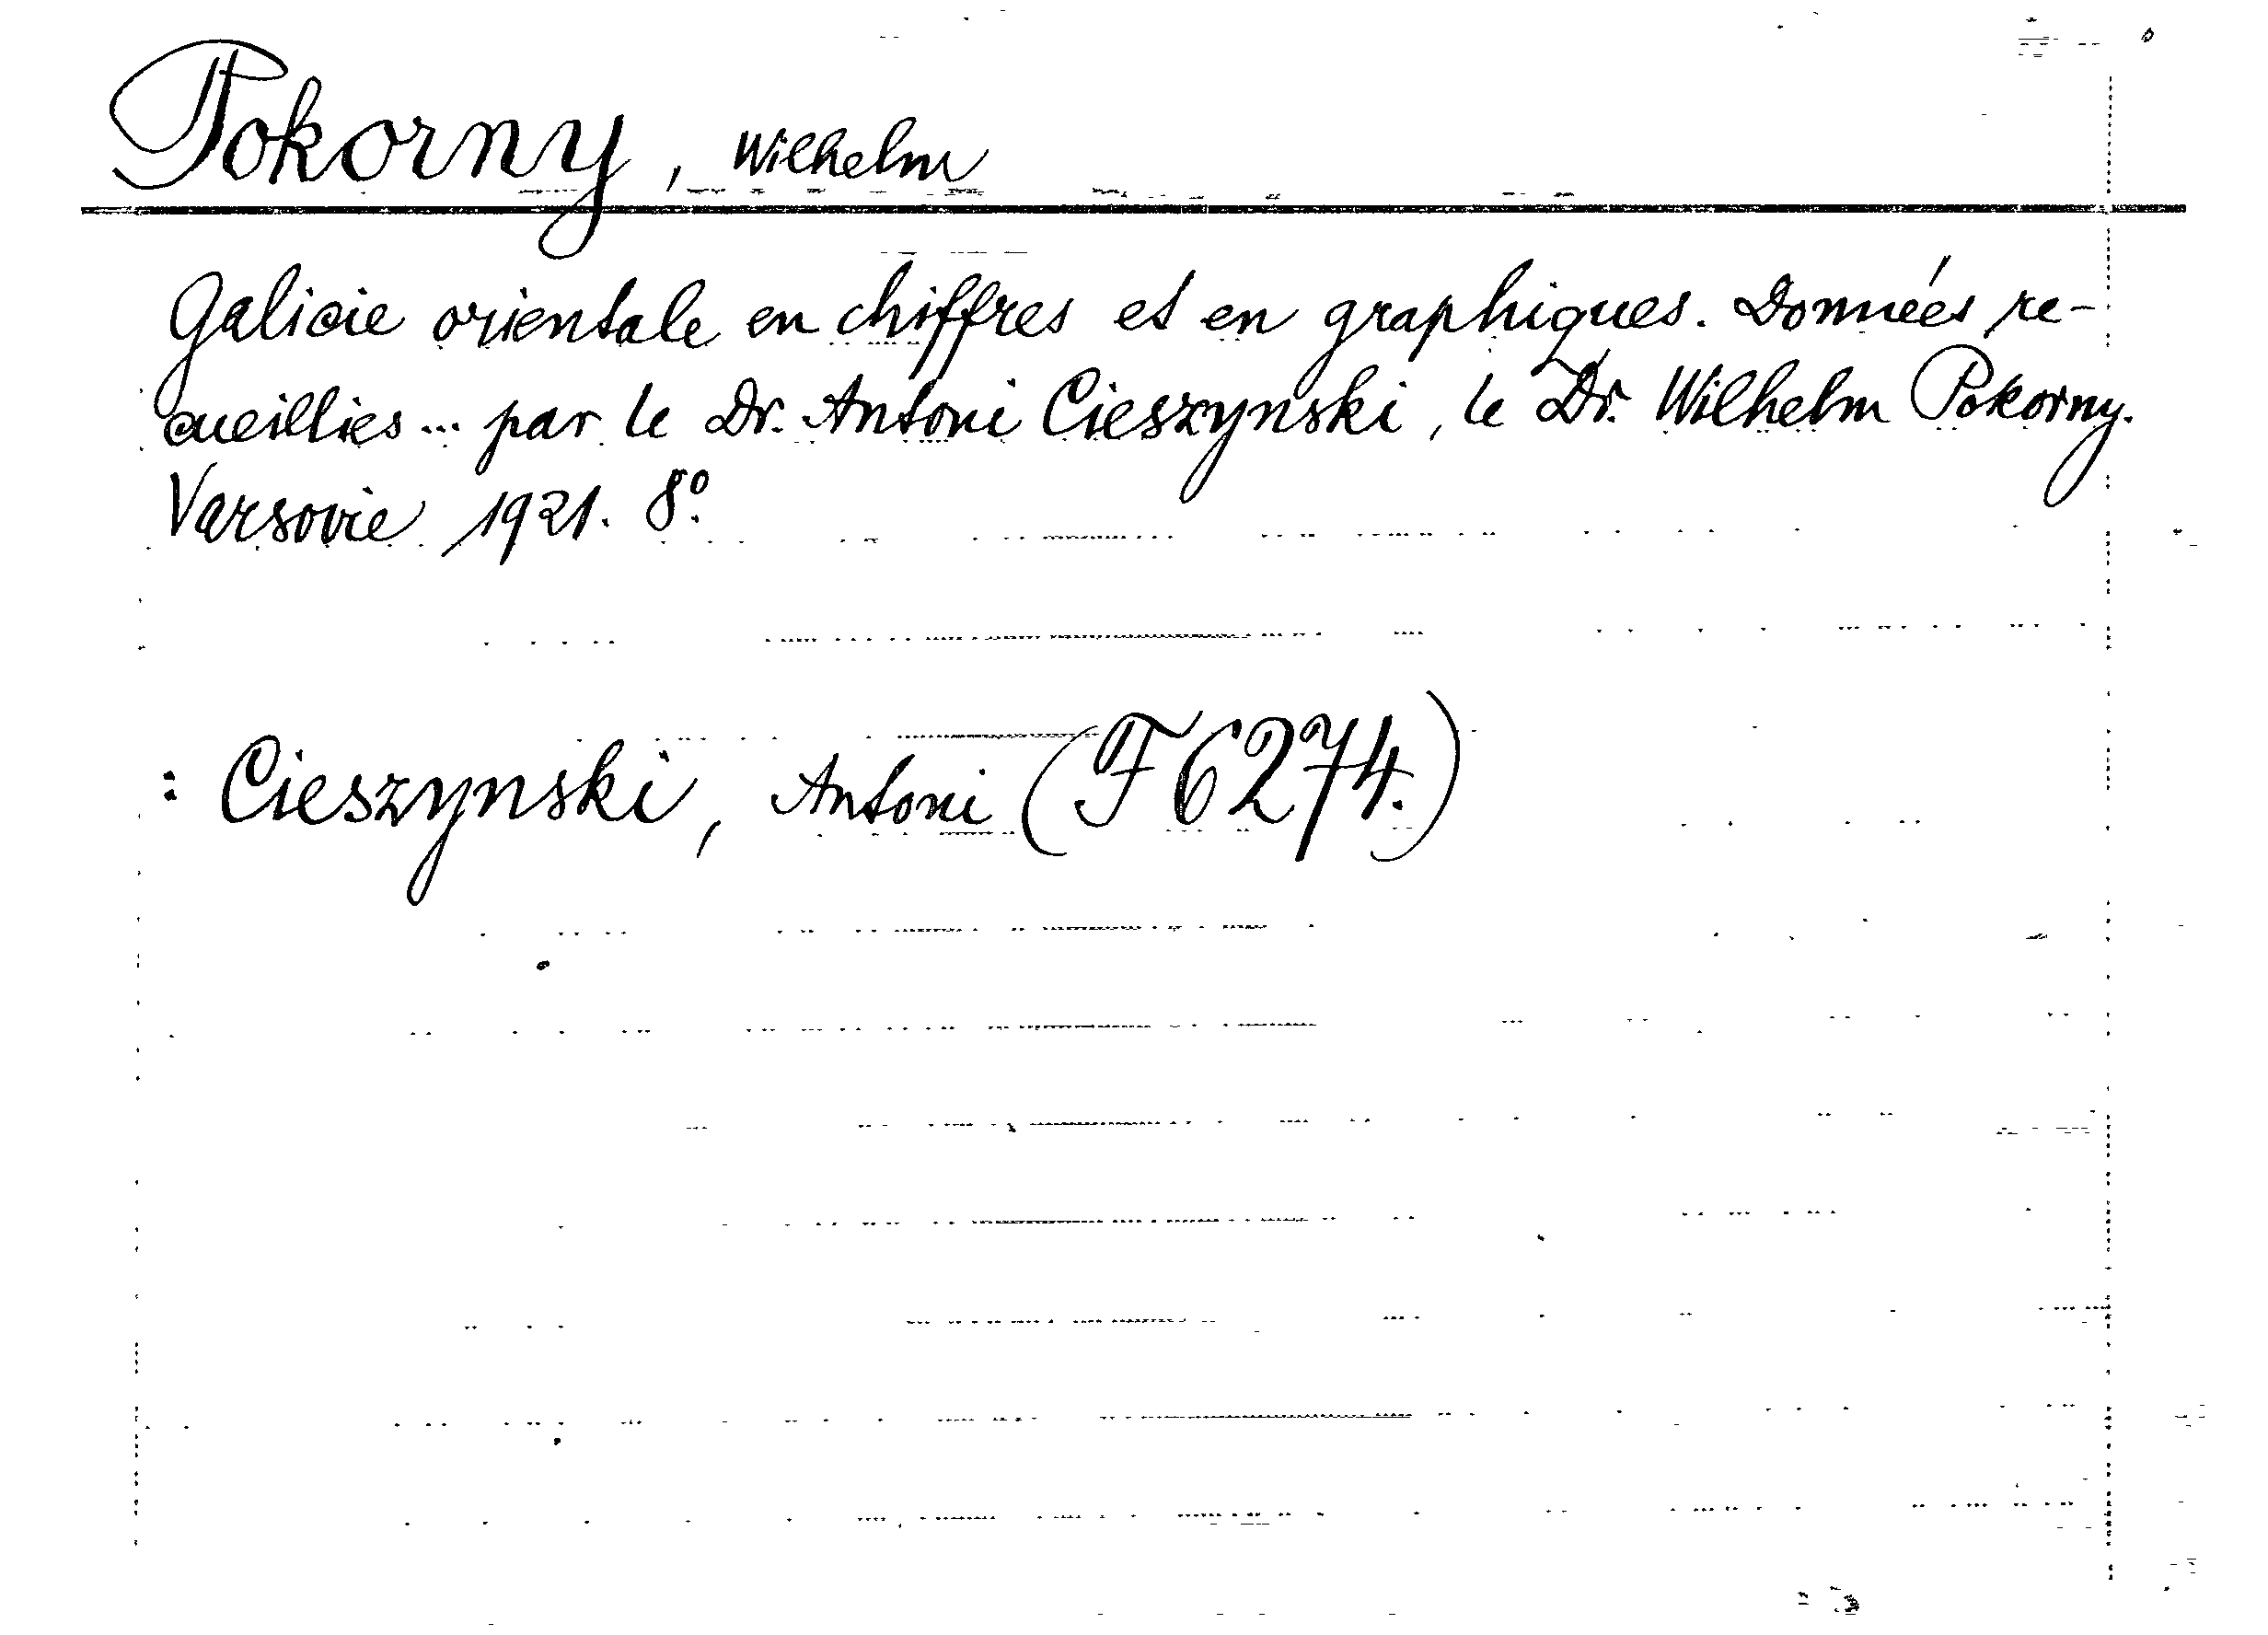 Pokorny, Wilhelm
Galicie orientale en chiffres et en graphiques. Données re-
cueillies... par le Dr. Antoni Cieszynski, le Dr. Wilhelm Pokorny.
Varsovie 1921. 8°.
: Cieszynski, Antoni (F 6274.)